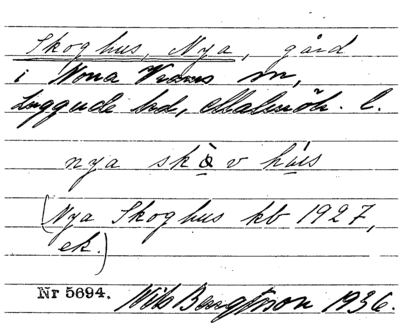 Skoghus, Nya, gård
i Norra Vrams sn,
Luggude hd, Malmöh. l.
nya skò̤v há̤us
(Nya Skoghus kb 1927,
ek.)
Nr 5694. Nils Bengtsson 1936.